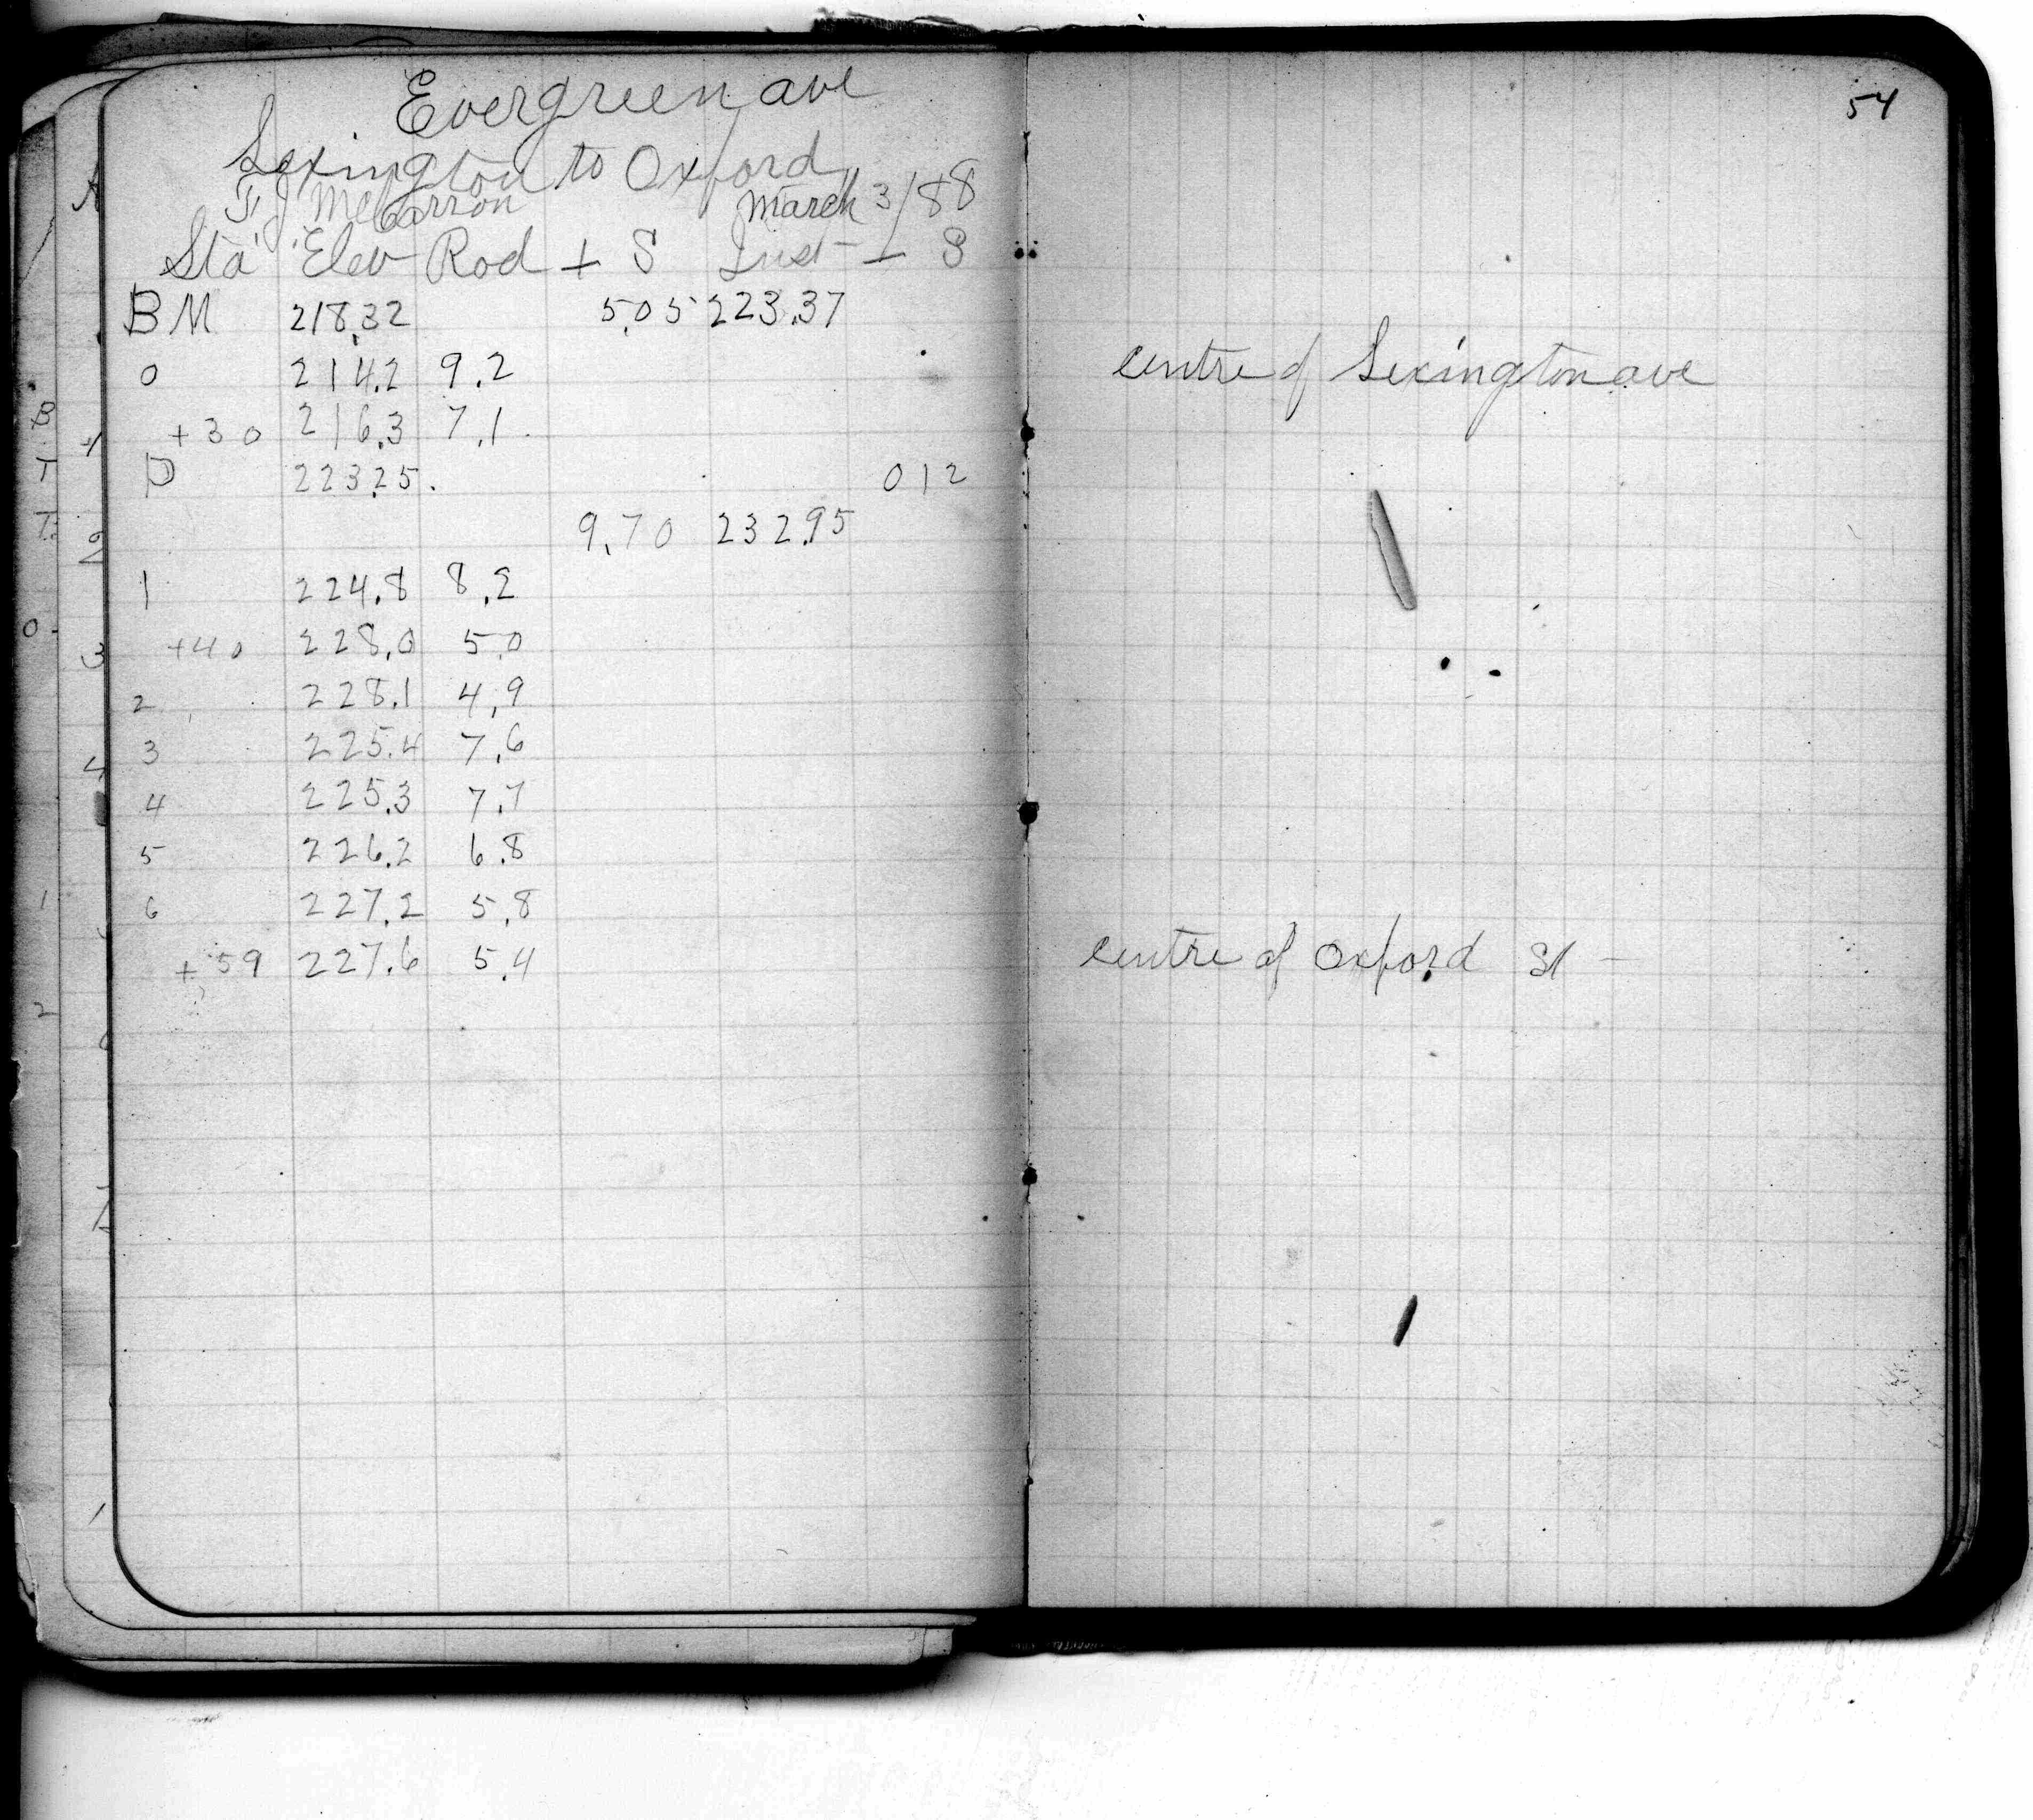 Evergreen ave
Lexington to Oxford
T. J. McCarron March 3/88
Sta Elev Rod + S Inst - S
BM 218.32 5.05 223.37
0 214.2 9.2
+30 216.3 7.1
P 223.25 0 12
9.70 232.95
1 224.8 8.2
+40 228.0 5.0
2 228.1 4.9
3 225.4 7.6
4 225.3 7.7
5 226.2 6.8
6 227.2 5.8
+59 227.6 5.4
54
centre of Lexington ave
centre of Oxford St